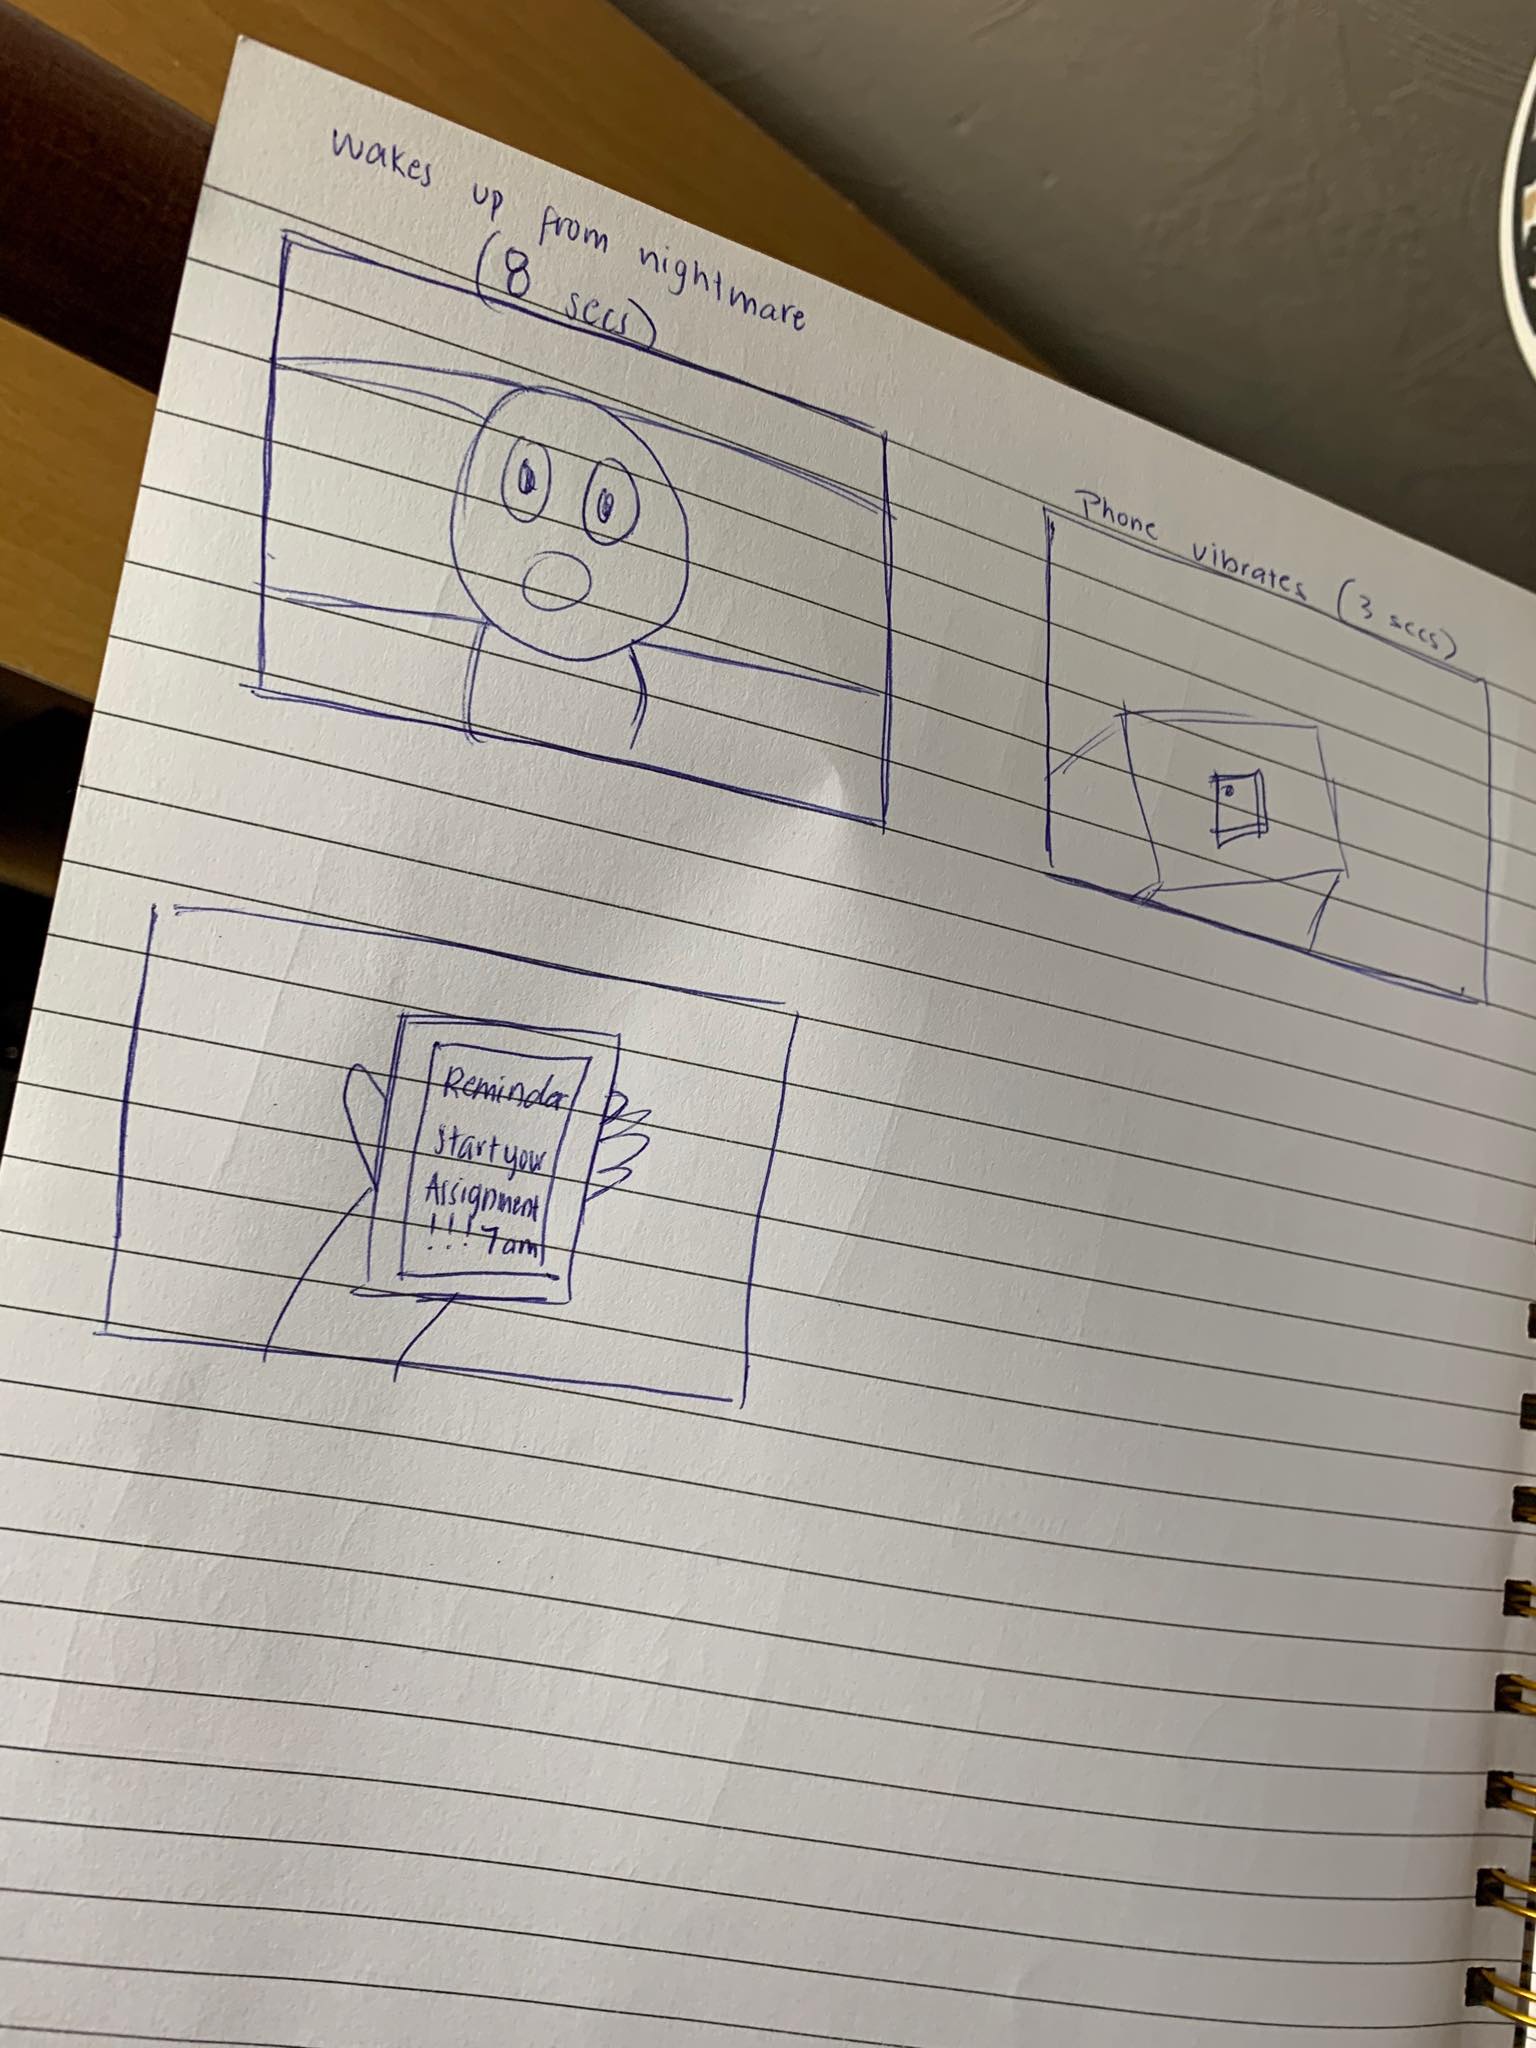 Wakes up from nightmare
(8 secs)
Phone vibrates (3 secs)
Reminder
start your
Assignment
!!! 7am